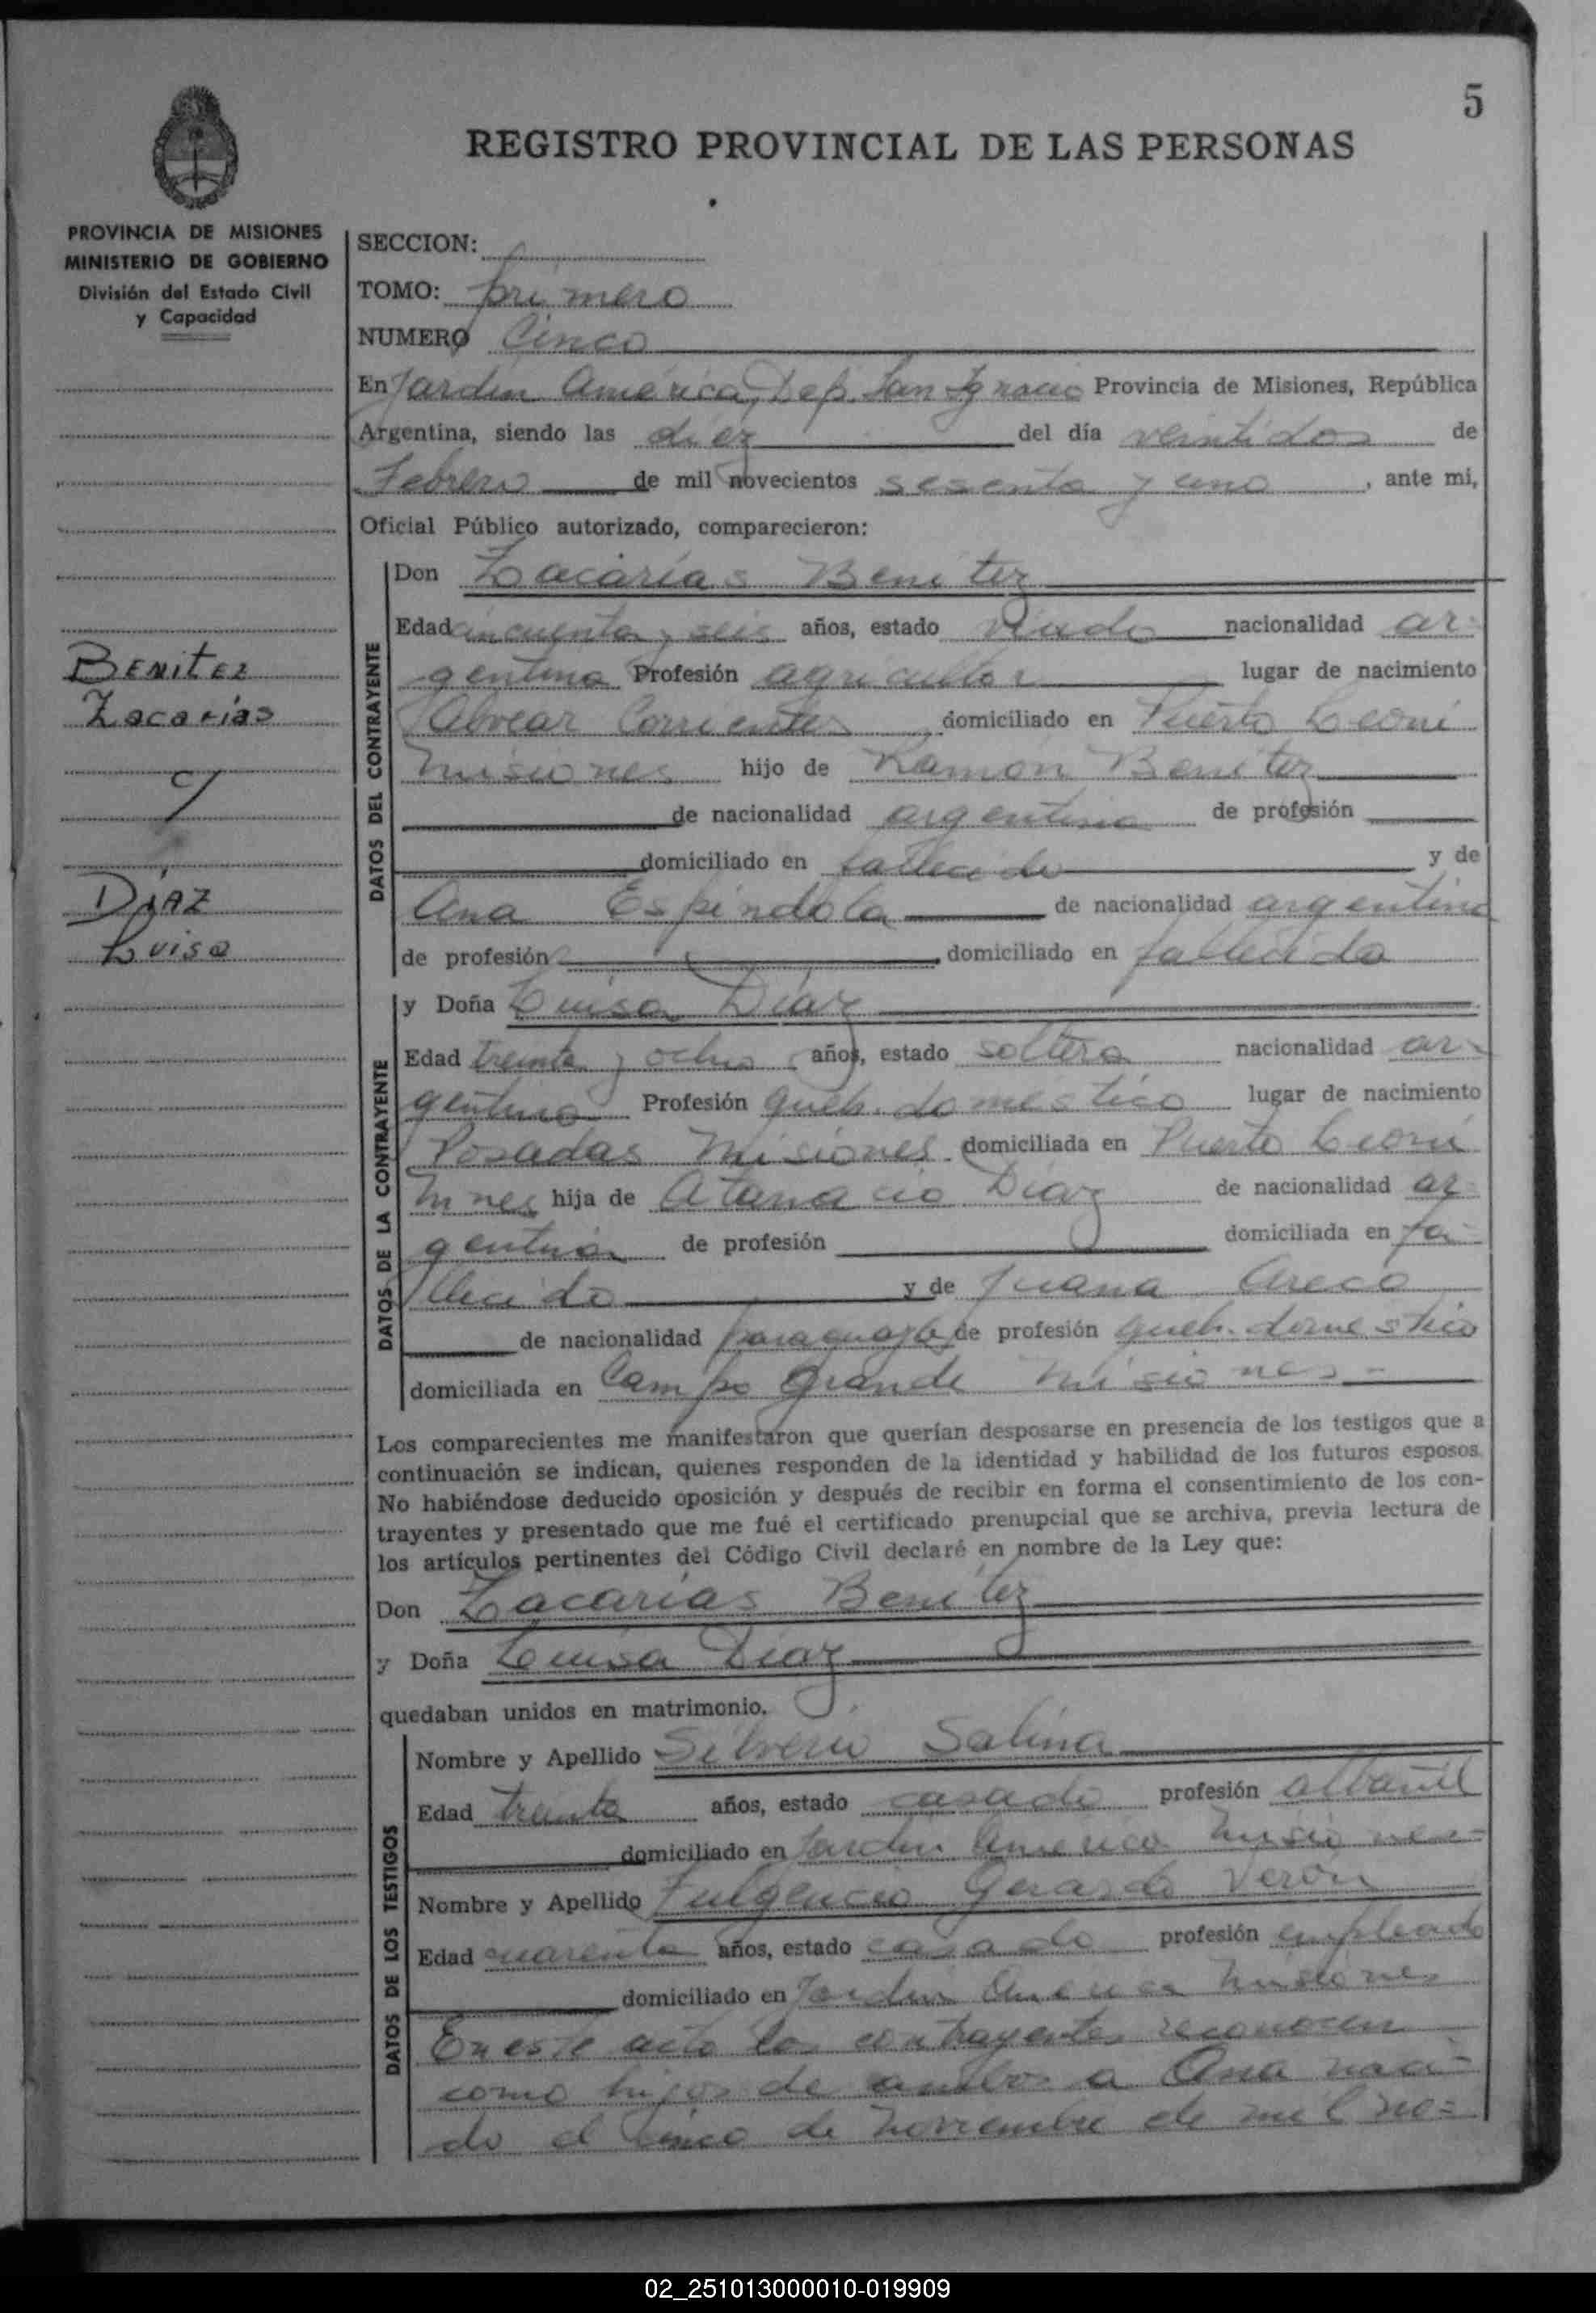 5
REGISTRO PROVINCIAL DE LAS PERSONAS
PROVINCIA DE MISIONES
MINISTERIO DE GOBIERNO
División del Estado Civil
y Capacidad
SECCION:
TOMO: primero
NUMERO Cinco
En Jardín América, Dep. San Ignacio Provincia de Misiones, República
Argentina, siendo las diez del día veintidos de
Febrero de mil novecientos sesenta y uno, ante mi,
Oficial Público autorizado, comparecieron:
BENITEZ
Zacarías
y
DIAZ
Luisa
DATOS DEL CONTRAYENTE
Don Zacarías Benitez
Edad cincuenta y seis años, estado viudo nacionalidad ar-
gentina Profesión agricultor lugar de nacimiento
Alvear Corrientes domiciliado en Puerto Leoni
Misiones hijo de Ramón Benitez
de nacionalidad argentina de profesión
domiciliado en fallecido y de
Ana Espindola de nacionalidad argentina
de profesión domiciliado en fallecida
DATOS DE LA CONTRAYENTE
y Doña Luisa Díaz
Edad treinta y ocho años, estado soltera nacionalidad ar-
gentina Profesión queh. doméstico lugar de nacimiento
Posadas Misiones domiciliada en Puerto Leoni
Mnes hija de Atanacio Díaz de nacionalidad ar-
gentina de profesión domiciliada en fa-
llecido y de Juana Areco
de nacionalidad paraguaya de profesión queh. domestico
domiciliada en Campo Grande Misiones-
Los comparecientes me manifestaron que querían desposarse en presencia de los testigos que a
continuación se indican, quienes responden de la identidad y habilidad de los futuros esposos.
No habiéndose deducido oposición y después de recibir en forma el consentimiento de los con-
trayentes y presentado que me fué el certificado prenupcial que se archiva, previa lectura de
los artículos pertinentes del Código Civil declaré en nombre de la Ley que:
Don Zacarías Benitez
y Doña Luisa Díaz
quedaban unidos en matrimonio.
DATOS DE LOS TESTIGOS
Nombre y Apellido Silverio Salina
Edad treinta años, estado casado profesión albañil
domiciliado en Jardín América Misiones-
Nombre y Apellido Fulgencio Gerardo Verón
Edad cuarenta años, estado casado profesión empleado
domiciliado en Jardín América Misiones
En este acto los contrayentes reconocen
como hijos de ambos a Ana naci-
do el cinco de noviembre de mil no=
02_251013000010-019909